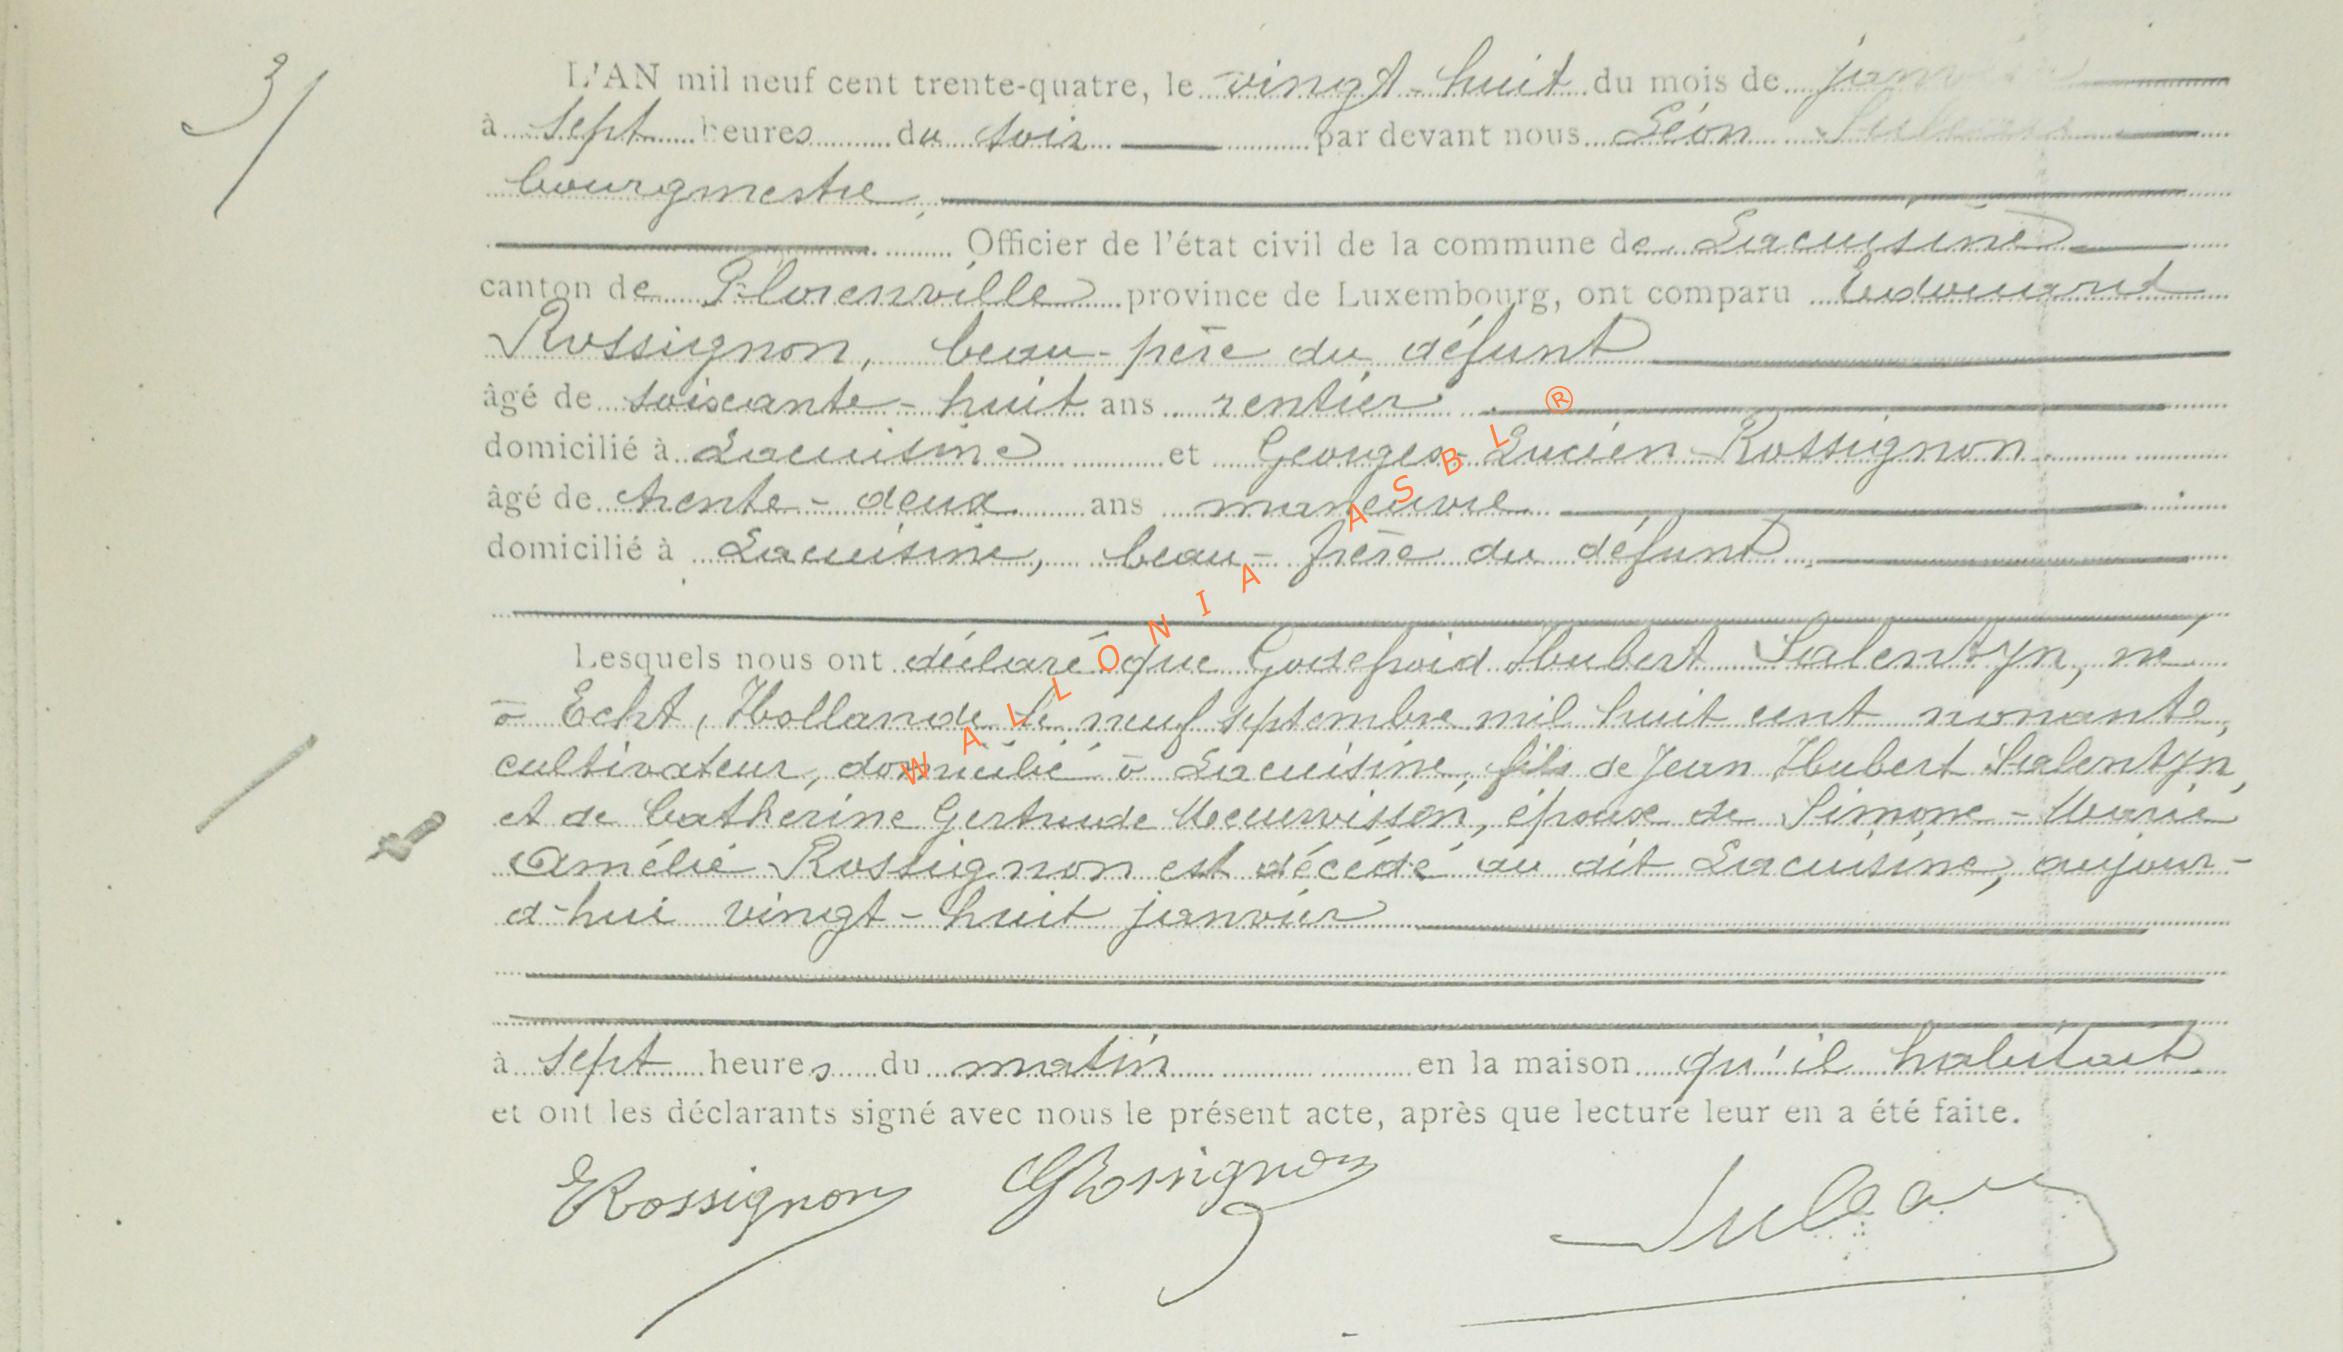 3/
L'AN mil neuf cent trente-quatre, le vingt-huit du mois de janvier
à sept heures du soir par devant nous Léon
bourgmestre,
Officier de l'état civil de la commune de Lacuisine
canton de Florenville province de Luxembourg, ont comparu Edouard
Rossignon, beau-père du défunt
âgé de soixante-huit ans rentier
domicilié à Lacuisine et Georges-Lucien Rossignon
âgé de trente-deux ans manœuvre
domicilié à Lacuisine, beau-frère du défunt
Lesquels nous ont déclaré que Godefroid Hubert Salentyn, né
à Echt, Hollande le neuf septembre mil huit cent nonante,
cultivateur, domicilié à Lacuisine, fils de Jean Hubert Salentyn,
et de Catherine Gertrude Meeuwissen, époux de Simone-Marie
Amélie Rossignon est décédé au dit Lacuisine, aujour-
d'hui vingt-huit janvier
à sept heures du matin en la maison qu'il habitait
et ont les déclarants signé avec nous le présent acte, après que lecture leur en a été faite.
ERossignon GRossignon
WALLONIA ASBL ®